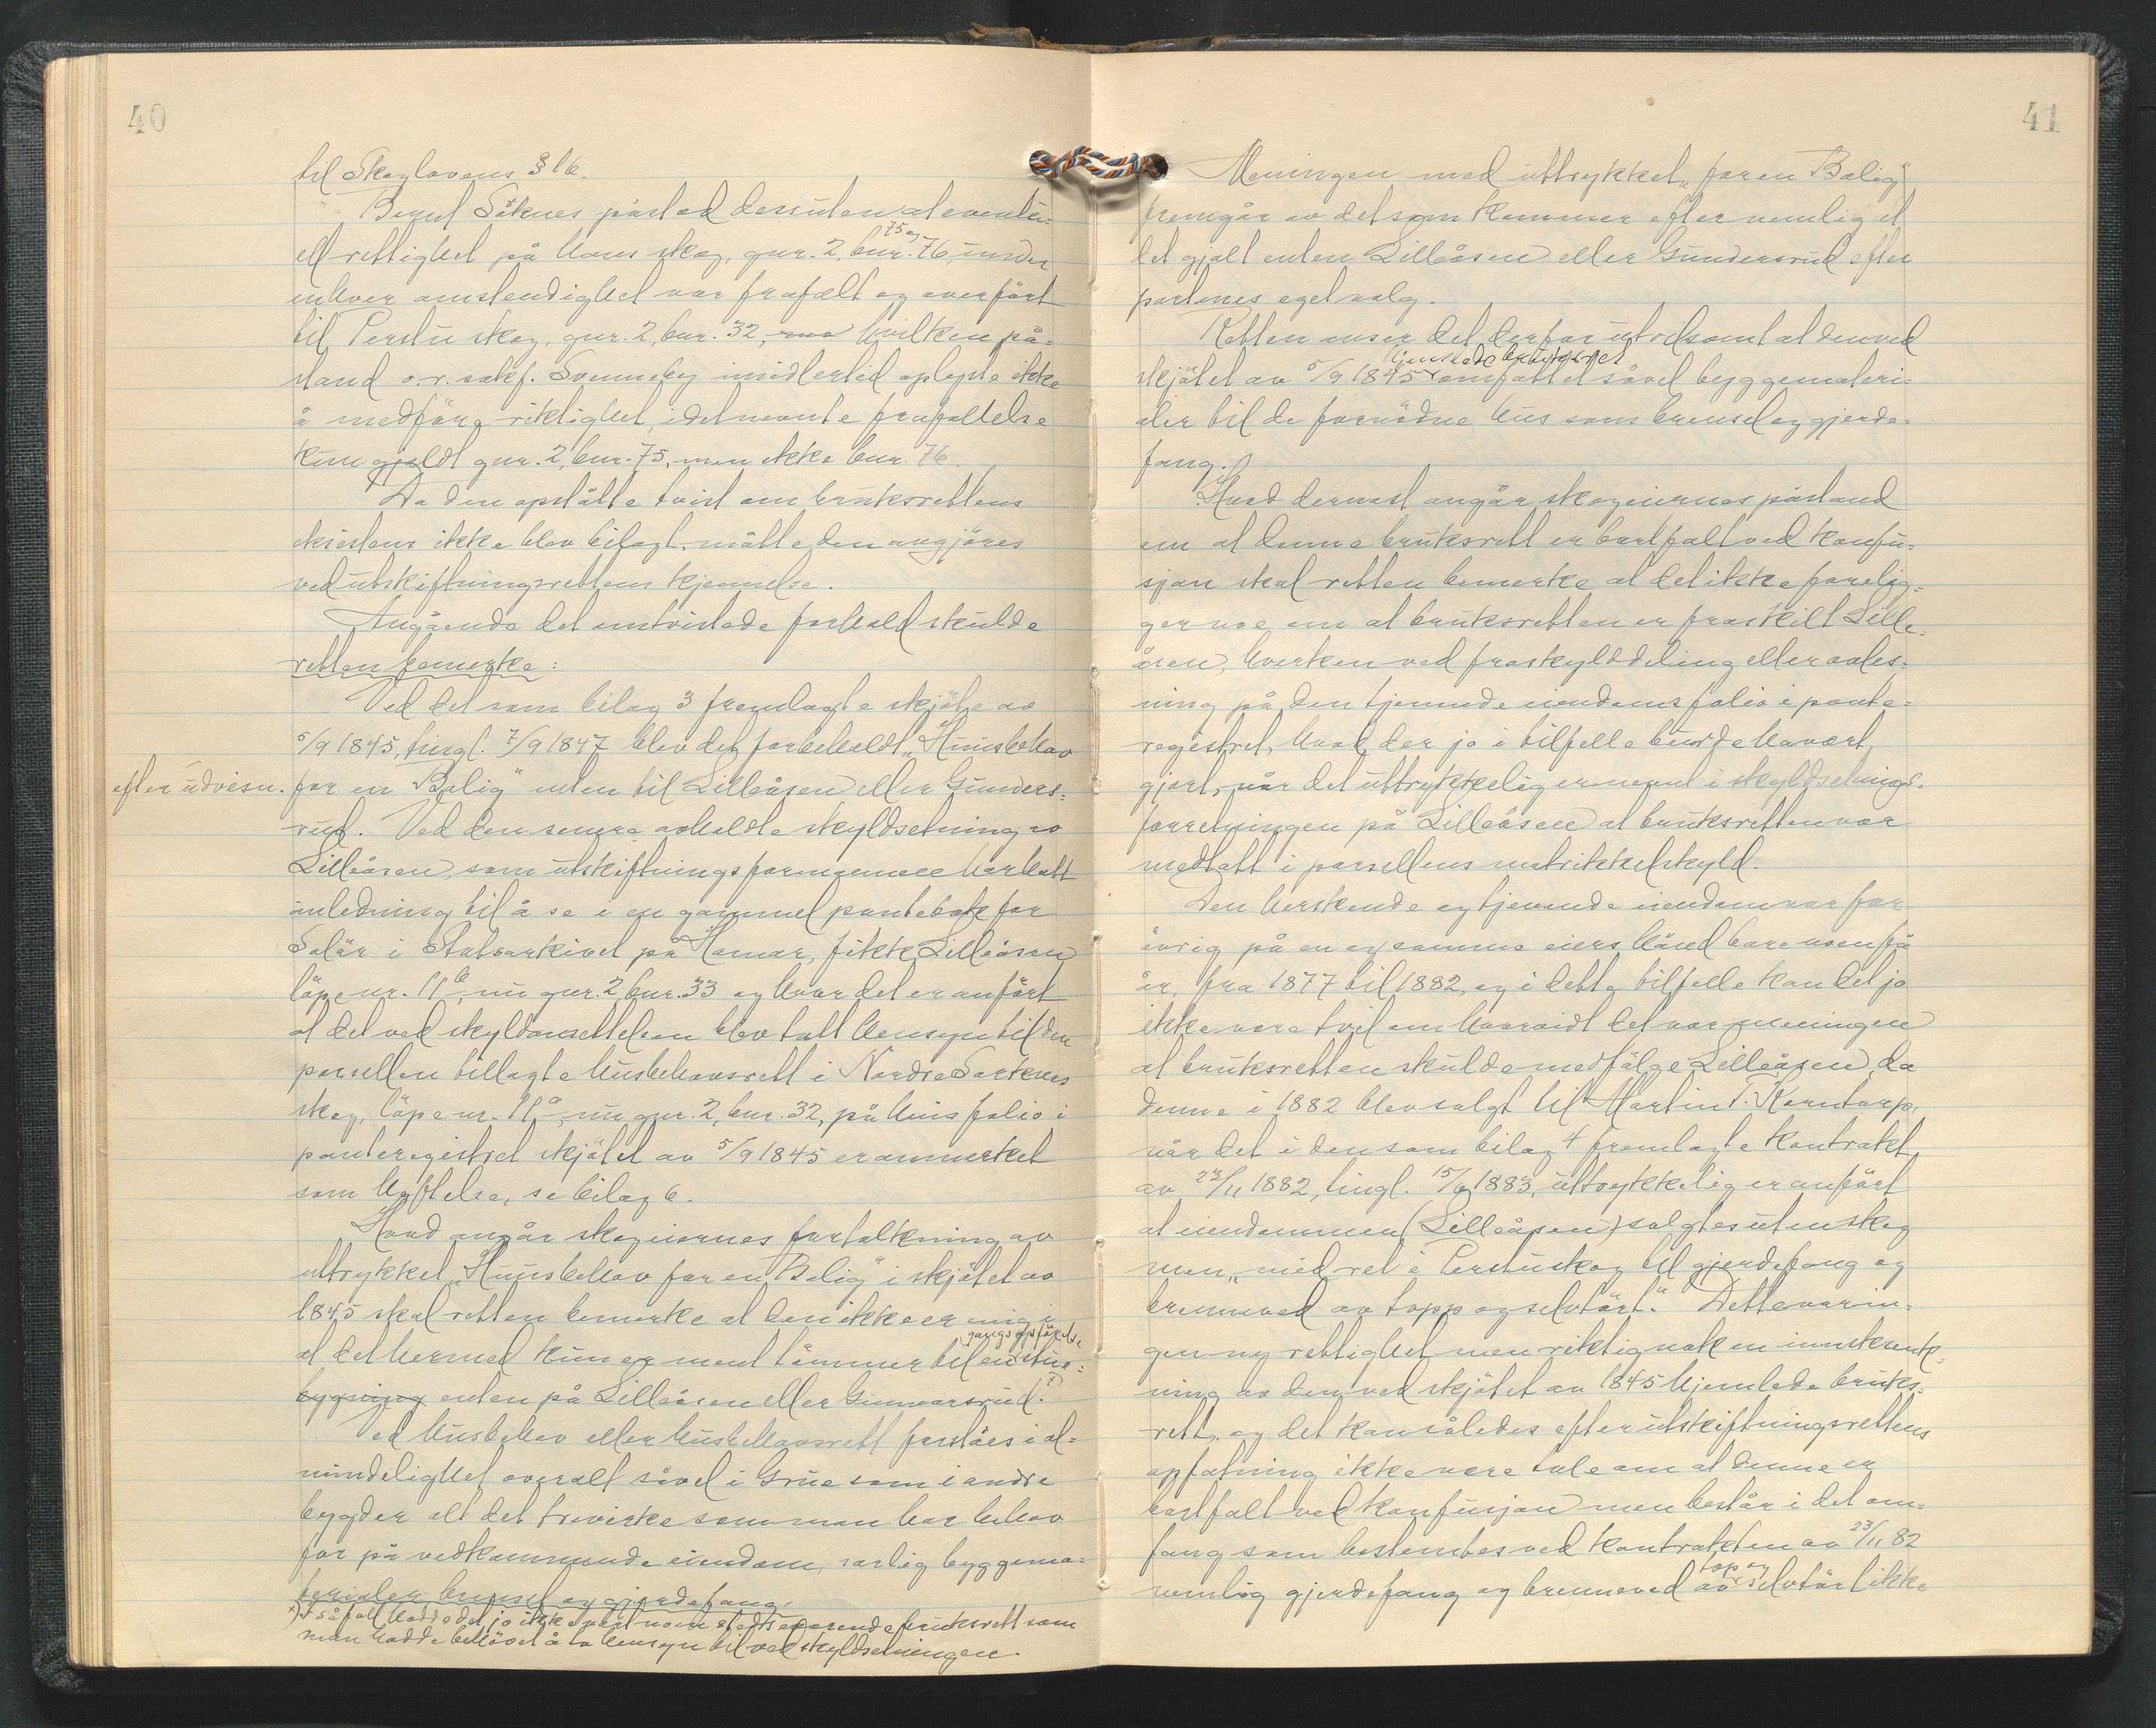 40
til Skoglovens § 16.
Bernt Såknes påstod dessuten at eventu-
ell rettighet på hans skog, gnr. 2, bnr. 75 og 76, under
enhver omstendighet var frafalt og overført
til Perstu skog, gnr. 2, bnr. 32, hvilken på-
stand o.r. sakf. Svenneby imidlertid oplyste ikke
å medføre riktighet, idet nevnte frafallelse
kun gjaldt gnr. 2, bnr. 75, men ikke bnr. 76.
Da den opståtte tvist om bruksrettens
eksistens ikke blev bilagt, måtte den avgjøres
ved utskiftningsrettens kjennelse.
Angående det omtvistede forhold skulde
retten bemerke:
Ved det som bilag 3 fremlagte skjøte av
5/9 1845, tingl. 7/9 1847 blev det forbeholdt „Huusbehov
efter udvisn. for en Bolig" enten til Lilleåsen eller Gunders-
rud. Ved den senere avholdte skyldsetning av
Lilleåsen, som utskiftningsformannen har hatt
anledning til å se i en gammel pantebok for
Solør i Statsarkivet på Hamar, fikk Lilleåsen
løpenr. 11b, nu gnr. 2, bnr. 33 og hvor det er anført
at det ved skyldansettelsen blev tatt hensyn til den
parsellen tillagte husbehovsrett i Nordre Saaknes
skog, løpenr. 11a, nu gnr. 2, bnr. 32, på huis folio i
panteregistret skjøtet av 5/9 1845 er anmerket
som heftelse, se bilag 6.
Hvad angår skogeiernes fortolkning av
uttrykket „Huusbehov for en Bolig" i skjøtet av
1845 skal retten bemerke at den ikke er enig i
at det hermed kun er ment tømmer til en gangs opførelse stue-
bygning enten på Lilleåsen eller Gunnarsrud. x)
Ved husbehov eller husbehovsrett forståes i al-
mindelighet overalt såvel i Grue som i andre
bygder alt det trevirke som man har behov
for på vedkommende eiendom, særlig byggema-
terialer, brensel og gjerdefang.
x) I så fall hadde det jo ikke vært noen stedsevarende bruksrett som
man hadde behøvet å ta hensyn til ved skyldsetningen.
41
Meningen med uttrykket „for en Bolig"
fremgår av det som kommer efter nemlig at
det gjalt enten Lilleåsen eller Gundersrud efter
partenes eget valg.
Retten anser det derfor utvilsomt at den ved
skjøtet av 5/9 1845 hjemlede bruksrett omfattet såvel byggemateri-
aler til de fornødne hus som brensel og gjerde-
fang.
Hvad dernæst angår skogeiernes påstand
om at denne bruksrett er bortfalt ved konfu-
sjon skal retten bemerke at det ikke forelig-
ger noe om at bruksretten er fraskilt Lille-
åsen, hverken ved fraskylddeling eller avles-
ning på den tjenende eiendoms folio i pante-
registret, hvad der jo i tilfelle burde ha vært
gjort, når det uttrykkelig er nevnt i skyldsetnings-
forretningen på Lilleåsen at bruksretten var
medtatt i parsellens matrikkelskyld.
Den herskende og tjenende eiendom var for-
øvrig på en og samme eiers hånd bare noen få
år, fra 1877 til 1882, og i dette tilfelle kan det jo
ikke være tvil om hvorvidt det var meningen
at bruksretten skulde medfølge Lilleåsen, da
denne i 1882 blev solgt til Martin T. Korntorp,
når det i den som bilag 4 fremlagte kontrakt
av 23/11 1882, tingl. 15/6 1883, uttrykkelig er anført
at eiendommen (Lilleåsen) solgtes uten skog
men „med ret i Perstuskog til gjerdefang og
brenneved av topp og selvtørt." Dette var in-
gen ny rettighet men riktignok en innskrenk-
ning av den ved skjøtet av 1845 hjemlede bruks-
rett, og det kan således efter utskiftningsrettens
opfatning ikke være tale om at denne er
bortfalt ved konfusjon men består i det om-
fang som bestemtes ved kontrakten av 23/11 82
nemlig gjerdefang og brenneved av top og selvtørt ikke